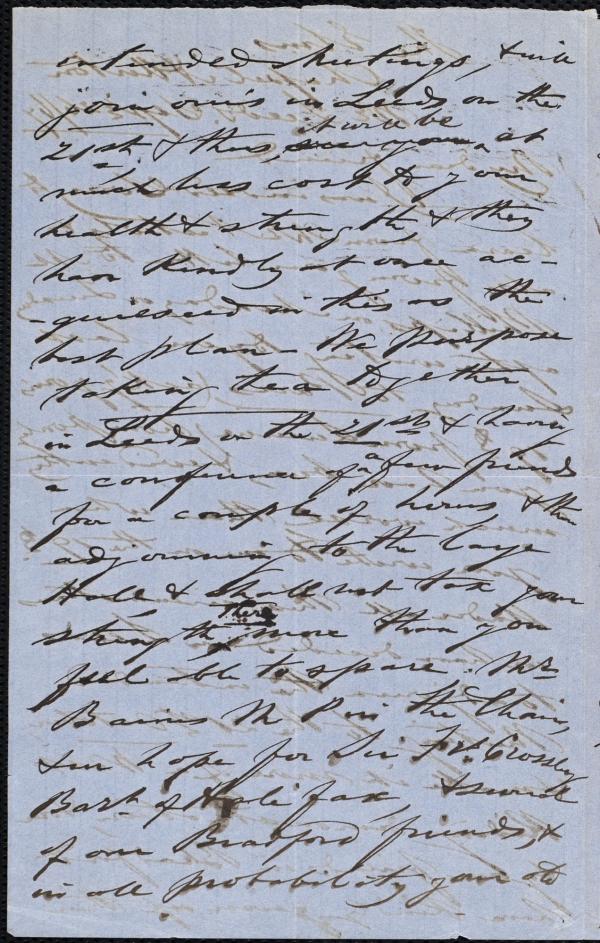 intended meetings, & will
join ours in Leeds on the
21st. & thus, it will be at
much less cost to your
health & strength, & they
have kindly at once ac-
-quiesced in this as the
best plan – We purpose
taking tea together
in Leeds on the 21st & having
a conference of a few friends
for a couple of hours, & then
adjourning to the large
Hall & shall not tax your
strength there more than you
feel able to spare. Mr
Baines M P in the Chair,
& we hope for Sir Frs. Crossley
Bart. of Halifax, & several
of our Bradford friends, &
in all probability your old